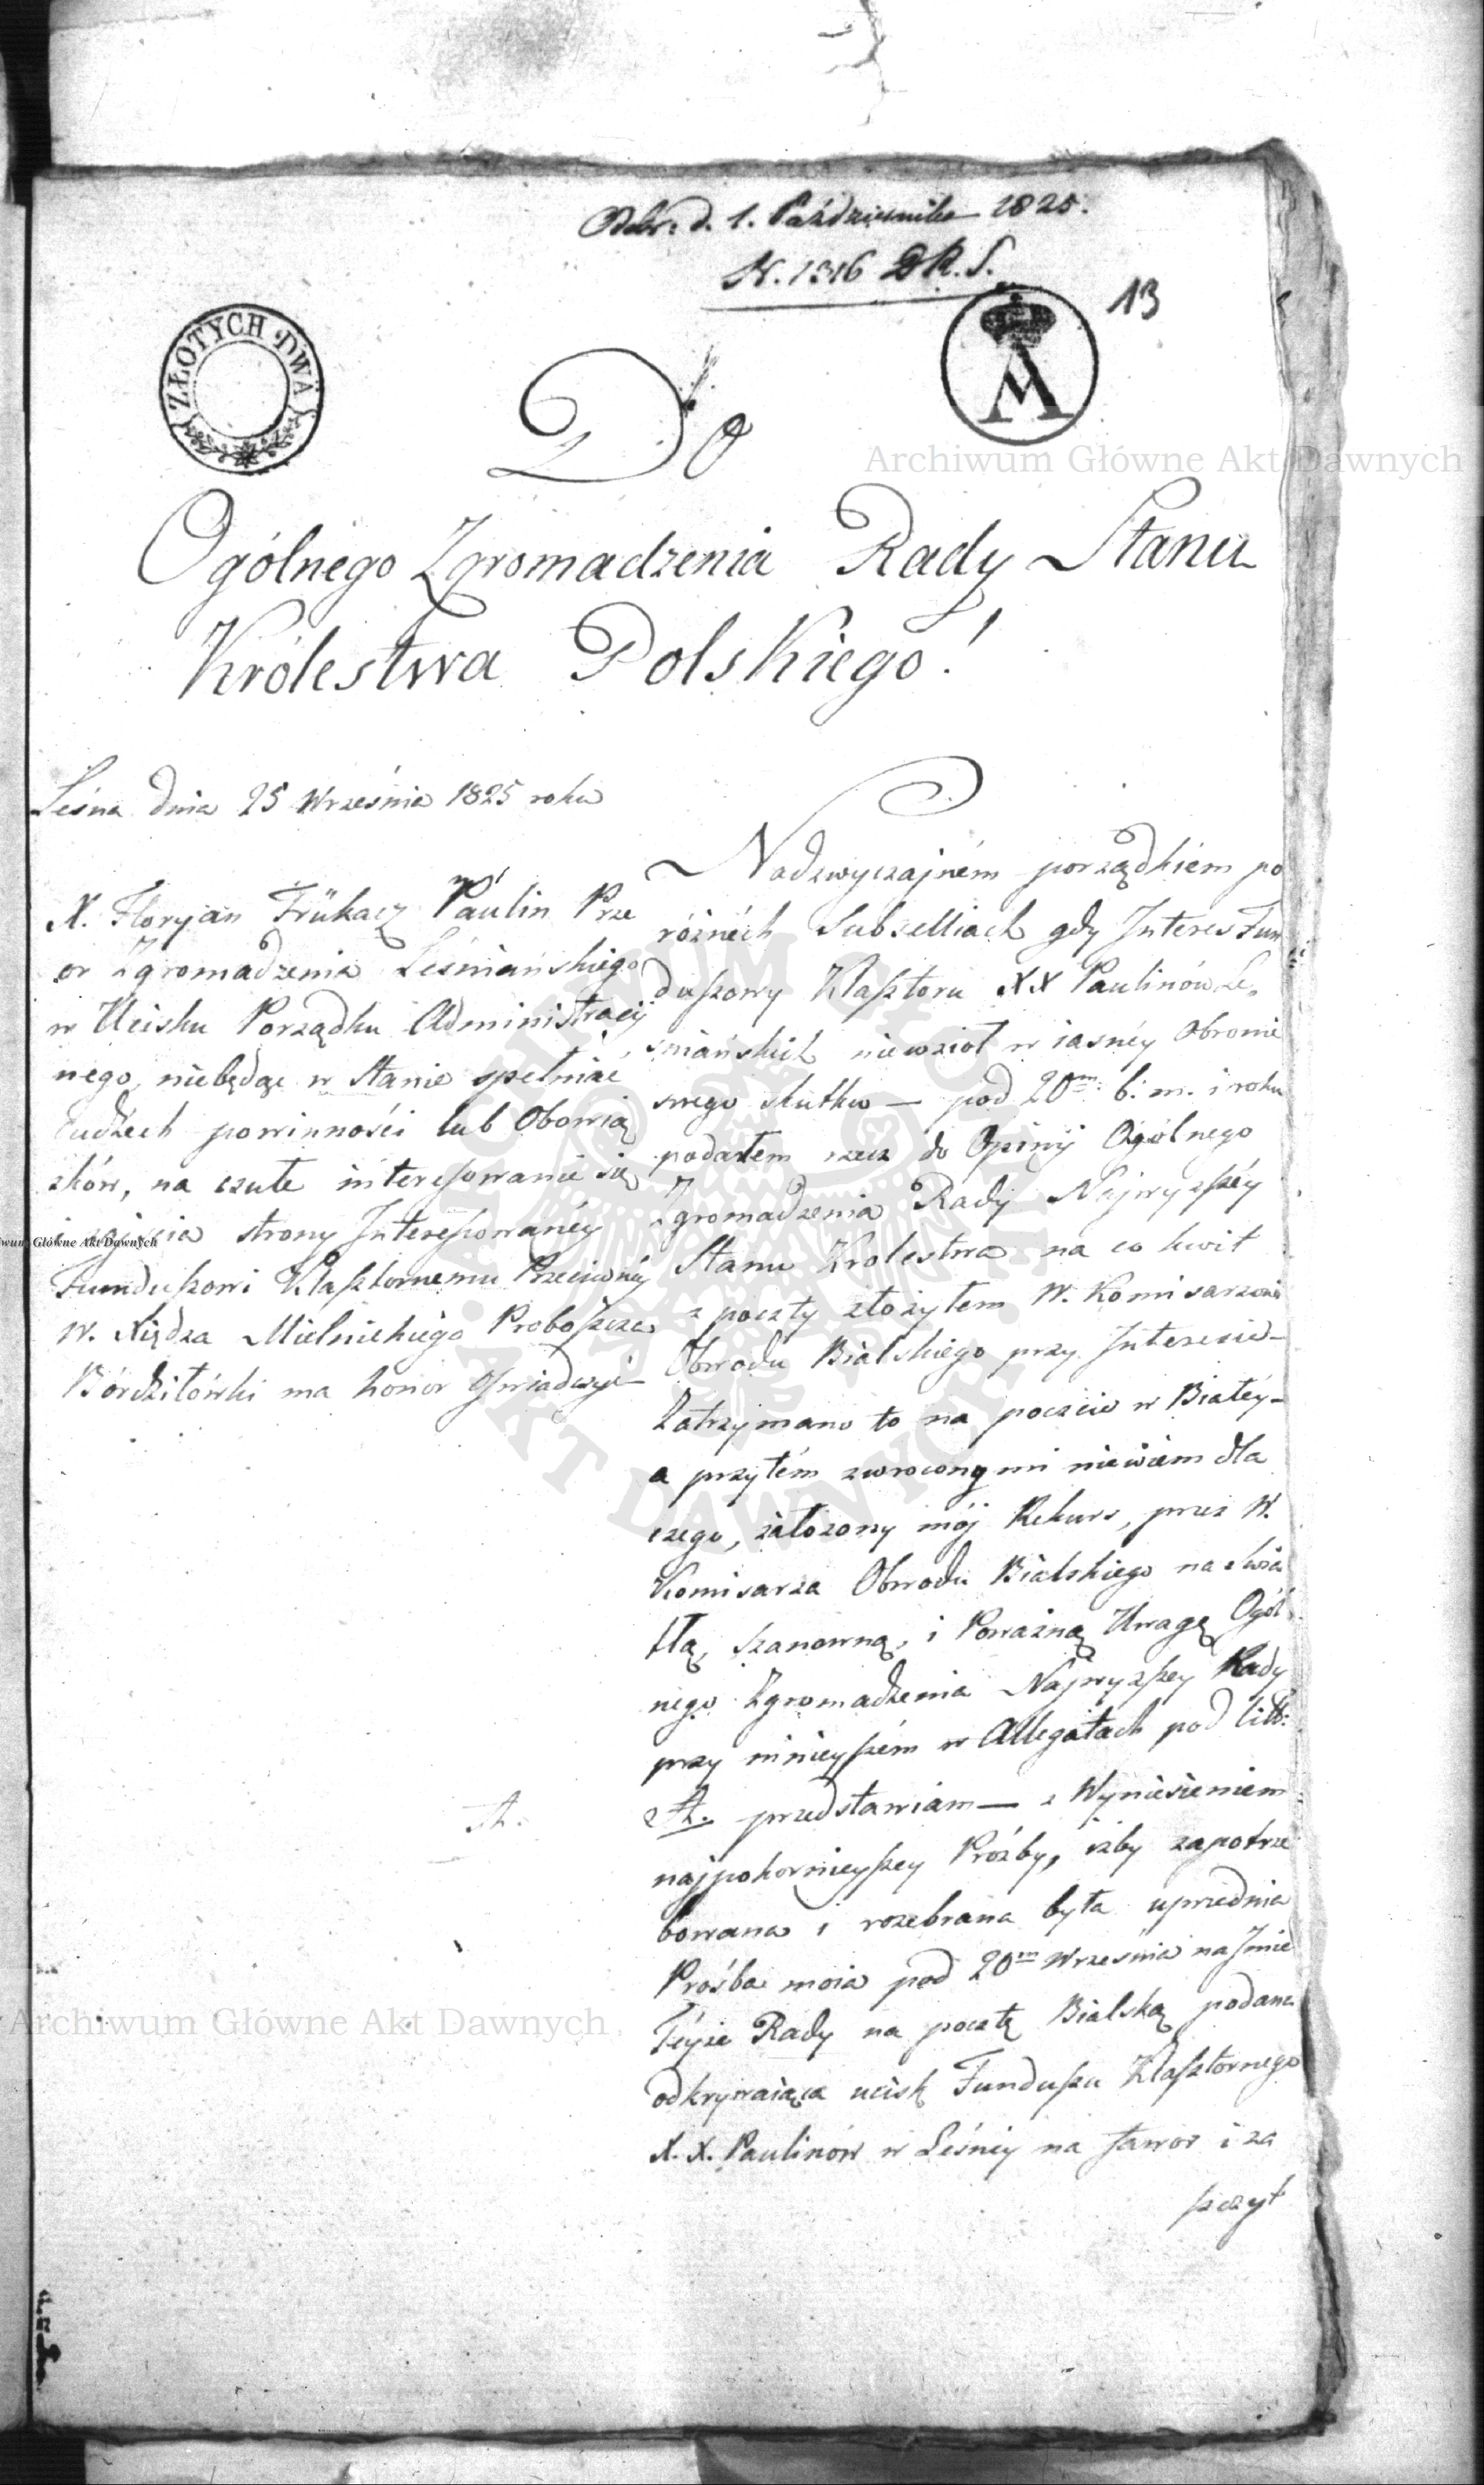 Odebr: d. 1. Października 1825.
N. 1316 D.R.S.
13
ZŁOTYCH DWA
A
Do
Ogólnego Zgromadzenia Rady Stanu
Królestwa Polskiego!
Leśna dnia 25 Września 1825 roku
X. Floryan Paulin Prze
or Zgromadzenia Leśniańskiego
w Ucisku Porządku Administracyi
nego, niebędąc w Stanie spełniać
powinności lub Obowią
zków, na czułe interesowanie się
strony Interesowanéy
Funduszowi Klasztornemu Przeciwnéy
W. Xiędza Mielnickiego Proboszcza
Bórdziłówki ma honor
A.
Nadzwyczajném porządkiém po
różnéch Subselliach gdy Interes Fun
duszowy Klasztoru XX Paulinów Le,
śniańskich niewziął w iasnéy Obronie
swego skutku — pod 20m b: m. i roku
podałem rzecz do Opinij Ogólnego
Zgromadzenia Rady Najwyższéy
Stanu Krolestwa na co kwit
z poczty złożyłem W. Komisarzowi
Obwodu Bialskiego przy Interesie —
Zatrzymano to na poczcie w Białéy —
a przytém zwrocony mi niewiem dla
czego, założony mój Rekurs, przez W.
Komisarza Obwodu Bialskiego na Świa
tłą, szanowną, i Poważną Uwagę Ogól,
nego Zgromadzenia Najwyższey Rady
przy ninieyszém w Allegatach pod litt:
A. przedstawiam — z Wyniesieniem
najpokornieyszey Próźby, iżby zapotrze
bowana i rozebrana była uprzednia
Prośba moia pod 20m Wrzesnia na Imie
Téyże Rady na pocztę Bialską podana
odkrywaiąca ucisk Funduszu Klasztornego
X.X. Paulinów w Leśnéy na Jawor i za
szczyt
Archiwum Główne Akt Dawnych
Archiwum Główne Akt Dawnych
Archiwum Główne Akt Dawnych
ARCHIWUM GŁÓWNE AKT DAWNYCH